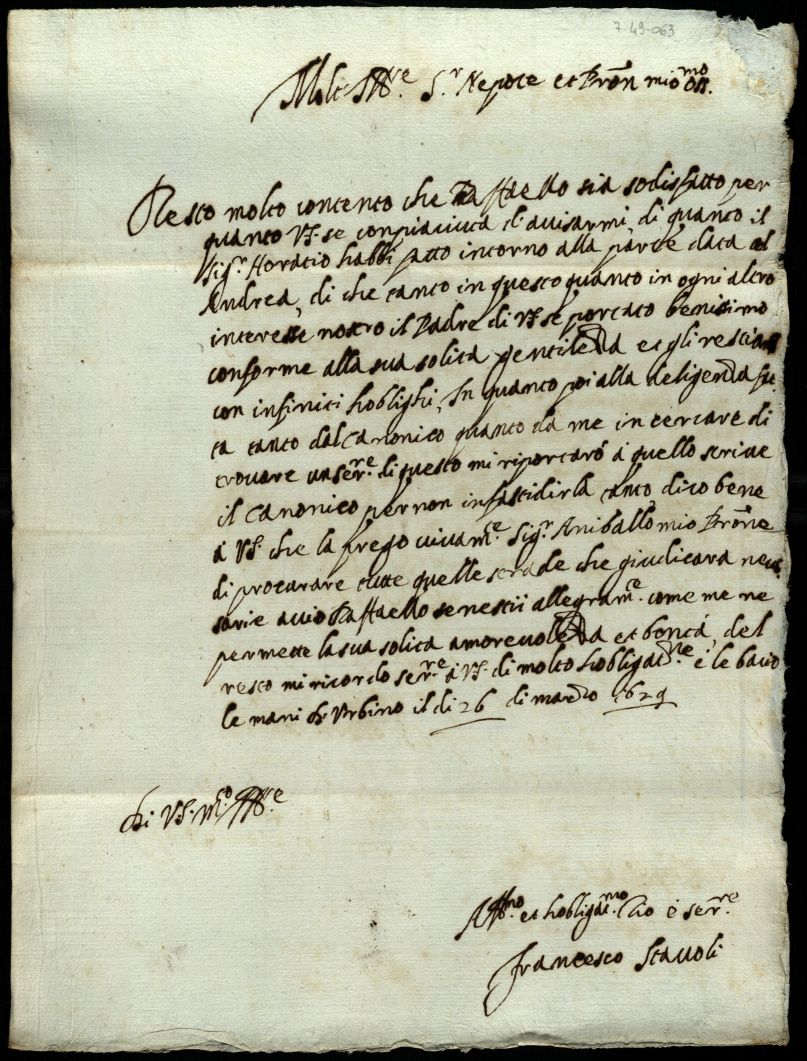 7-49-063
Molt Ill.re S.r Nepote et Pron mio oss.mo
Resto molto contento che Raffaello sia sodisfatto per
quanto VS. se conpiaciuta d'avisarmi, di quanto il
Sig.r Horatio habbi fatto intorno alla parte data al
Andrea, di che tanto in questo quanto in ogni altro
interesse nostro il Padre di VS. se portato benissimo
conforme alla sua solita gentilezza et gli restiam
con infiniti hoblighi, In quanto poi alla deligenza fat
ta tanto dal Canonico quanto da me in cercare di
trovare un ser.re di questo mi riportarò à quello scrive
il Canonico per non infastidirla tanto, dico bene
à VS. che la prego vivam.e Sig.r Aniballo mio Prone
di procurare tutte quelle strade che giudicara neces
sarie acciò Raffaello se ne stii allegram.e come me ne
permette la sua solita amorevolezza et bontà, del
resto mi ricordo ser.re à VS. di molto hobligat.ne e le bacio
le mani di Urbino il di 26 di marzo 1629
Di V.S. M.o Ill.re
Aff.mo et hobligat.mo Zio è ser.re
Francesco Stavoli